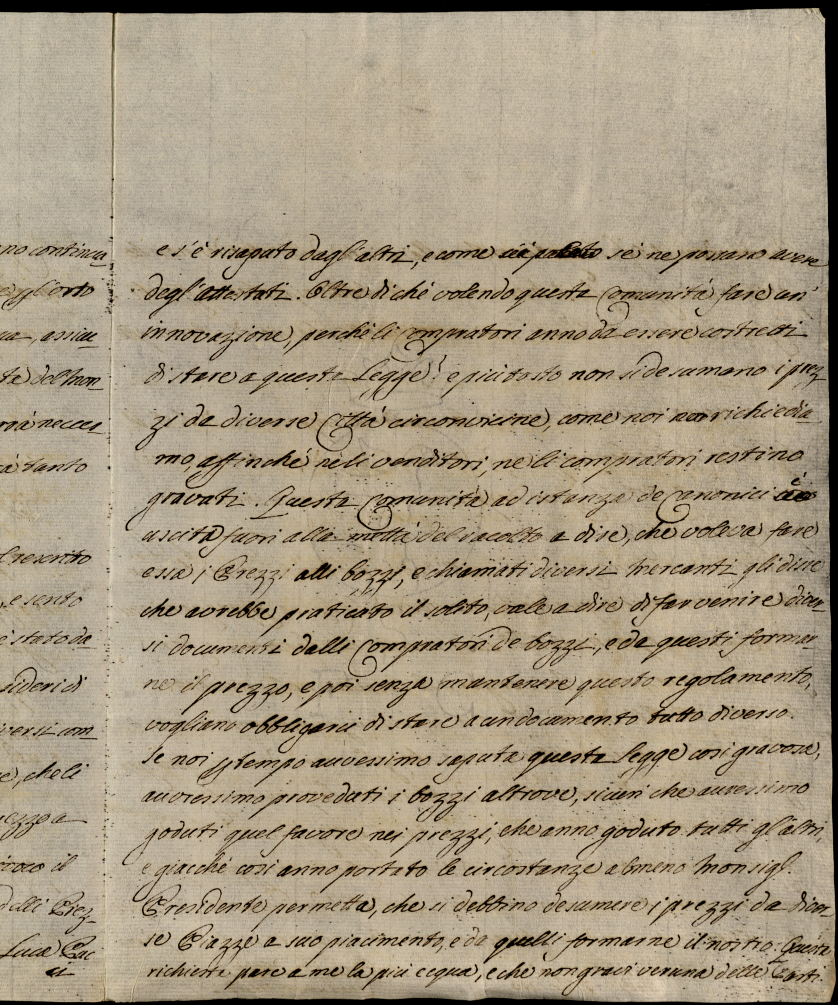 no continua
e gl'orto
ua, assicu
ta del mon
rrà necces
rà tanto
Prescritto
, e sento
è stato da
sideri di
iversi com
e, che li
rezzo a
il
delli Prez
Luca Pac
e s'è risaputo dagl'altri, e come se ne possano avere
degl'attestati. Oltre di chè volendo questa Comunità fare un'
innovazione, perchè li Compratori anno da essere costretti
di stare a questa Legge? e più tosto non si desumano i prez
zi da diverse Città circonvicine, come noi richiedia
mo, affinchè nè li venditori, ne li compratori restino
gravati. Questa Comunità ad istanza de Canonici è
uscita fuori alla mettà del racolto a dire, che voleva fare
essa i Prezzi alli bozzi, e chiamati diversi Mercanti gli disse
che avrebbe praticato il solito, vale a dire di far venire diver
si documenti dalli Compratori de bozzi, e da questi formar
ne il prezzo, e poi senza mantenere questo regolamento,
vogliano obbligarci di stare a un documento tutto diverso.
Se noi p tempo avvessimo saputa questa Legge così gravosa,
avvressimo proveduti i bozzi altrove, sicuri che avvressimo
goduti quel favore nei prezzi, che anno goduto tutti gl'altri,
e giacchè così anno portato le circostanze almeno Monsigr.
Presidente permetta, che si debbino desumere i prezzi da diver
se Piazze a suo piacimento, e da quelli formarne il nostro. Questa
richiesta pare a me la più eequa, e che non gravi veruna delle Parti.